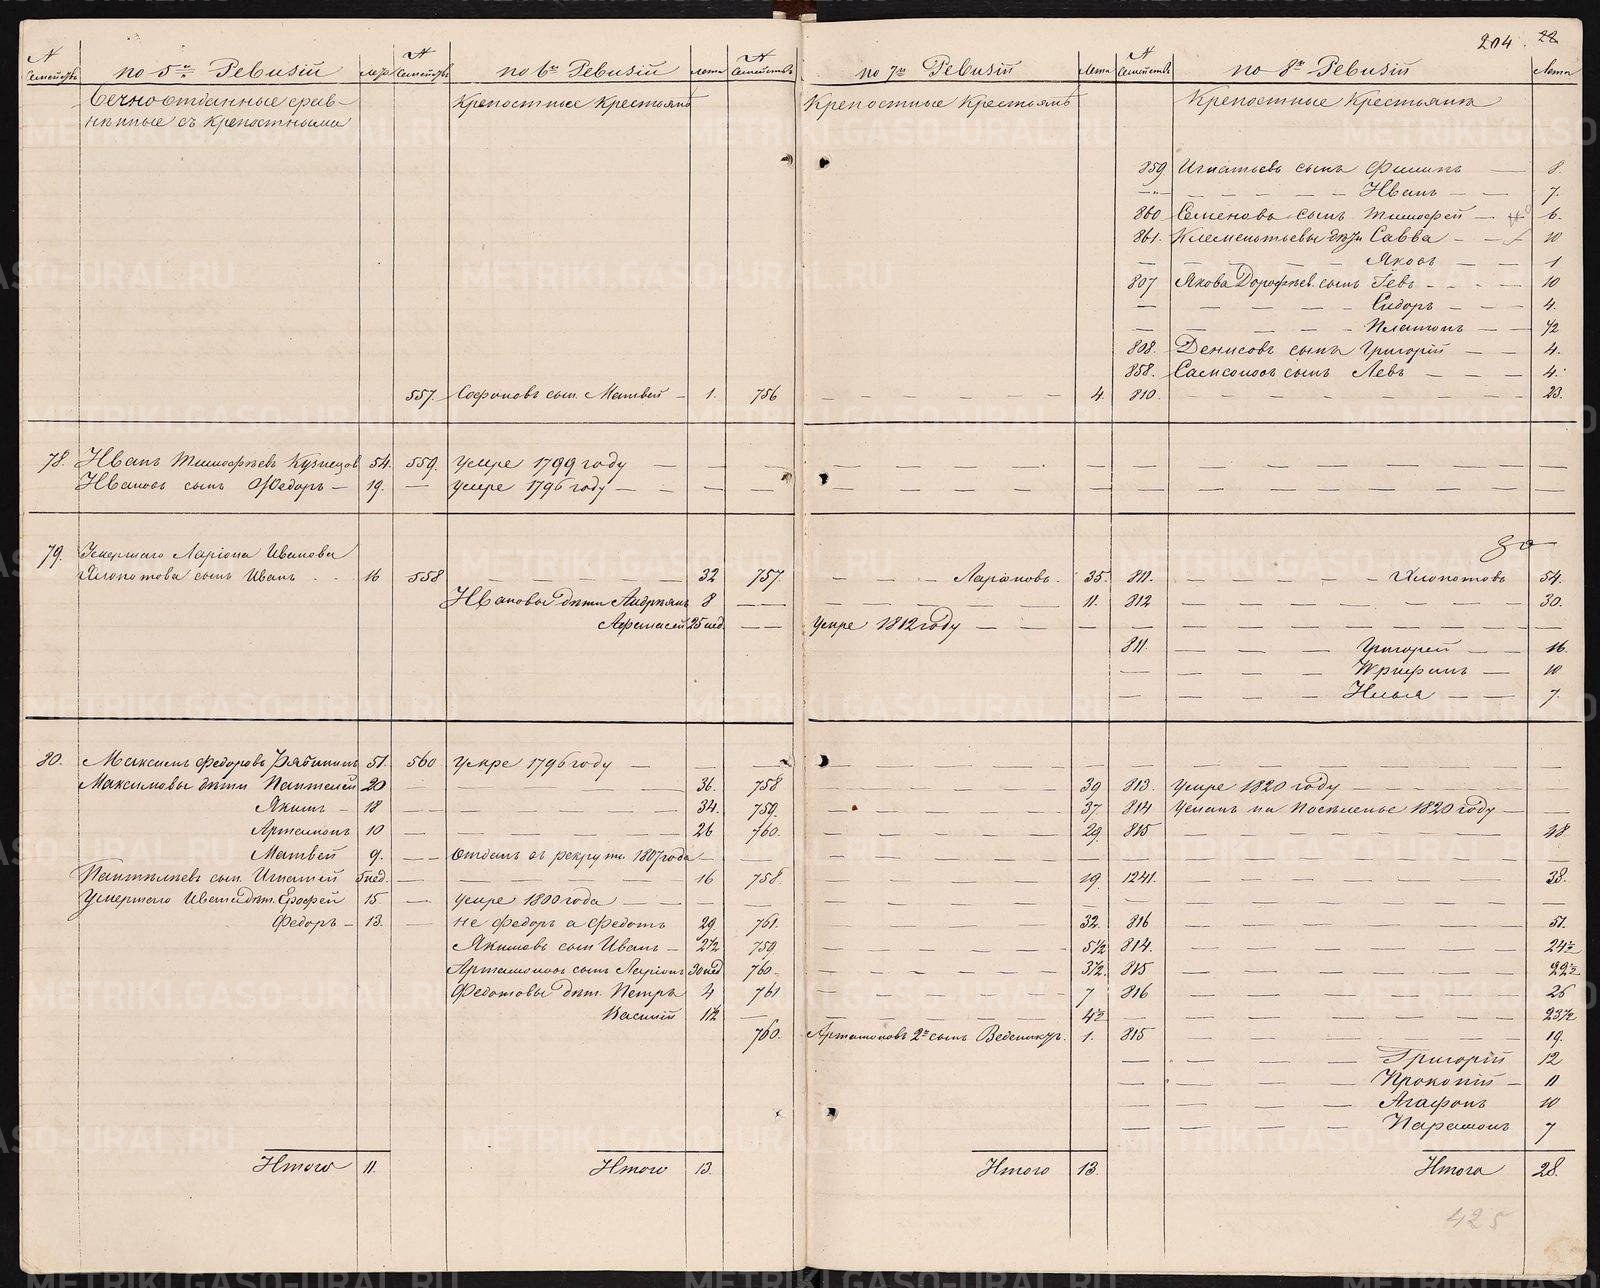 204. 22
№ Семействъ по 5й Ревизіи Лета № Семействъ по 6й Ревизіи Лета № Семействъ по 7й Ревизіи Лета № Семействъ по 8й Ревизіи Лета
Вечноотданные срав- Крепостные Крестьянъ Крепостные Крестьянъ Крепостные Крестьяна
ненные съ крепостными
859 Игнатьевъ сынъ Филипъ — 8.
—"— — — — — Иванъ — — 7.
860 Семеновъ сынъ Тимофей — 6.
861. Клементьевы дѣти Савва — — 10
— — — — — Яковъ — — 1
807 Якова Дорофѣев. сынъ Іевъ — — — 10
— — — — — Сидоръ — — 4.
— — — — — Платонъ — — 1/2
808. Денисовъ сынъ Григорій — — 4.
858. Самсоновъ сынъ Левъ — — — 4.
557. Софоновъ сын. Матвей — 1. 756 — — — — — — 4. 810. — — — — — — — — 23.
78. Иванъ Тимофѣевъ Кузнецов 54. 559. умре 1799 году — — — — — — — — —
Ивановъ сынъ Федоръ — 19. — умре 1796 году — — — — — — — — —
30
79. Умершаго Ларіона Иванова
Хлопотова сынъ Иванъ . . 16 558 — — — — 32 757. — — — Ларіоновъ. 35. 811. — — — — — Хлопотовъ 54.
Ивановы дѣти Андреянъ 8 — — — — — — — 11. 812 — — — — — — — 30.
Афанасей 25 нед. — — умре 1812 году — — — — — — — — —
811. — — — — Григорей — — 16.
— — — — — Трифонъ — — 10
— — — — — Илья — — 7.
80. Максимъ Федоровъ Рябининъ 51. 560 умре 1796 году — — — — — — — — —
Максимовы дѣти Пантелей 20 — — — — 36. 758 — — — — — 39 813. умре 1820 году — — — —
Якимъ — 18 — — — — 34. 759. — — — — — 37 814 Усланъ на Поселенье 1820 году — —
Артамонъ 10 — — — — 26 760. — — — — — 29. 815 — — — — — — 48.
Матвей 9. — — отданъ въ рекруты 1807 года — — — — — — — —
Пантелѣевъ сын. Игнатей 5 нед. — — — — 16 758. — — — — — 19. 1241. — — — — — — 38.
Умершаго Ивана дѣт. Ерофей 15 — умре 1800 года — — — — — — — — —
Федоръ — 13. — не Федоръ а Федотъ 29 761. — — — — — 32. 816 — — — — — — 51.
Якимовъ сын Иванъ — 2 1/2 759. — — — — — 5 1/2 814. — — — — — — 24 1/2
Артамоновъ сын. Ларіонъ 30 нед 760. — — — — — 3 1/2. 815 — — — — — — 22 1/2
Федотовы дѣт. Петръ 4 761 — — — — — 7 816 — — — — — — 26
Василій 1 1/2 — — — — — — 4 1/2 — — — — — — 23 1/2
760. Артамоновъ 2й сынъ Веденикъ. 1. 815 — — — — — — 19.
— — — — — Григорій 12
— — — — — Прокопій — 11
— — — — — Агафонъ 10
— — — — — Парамонъ 7
Итого 11. Итого 13. Итого 13. Итога 28.
425